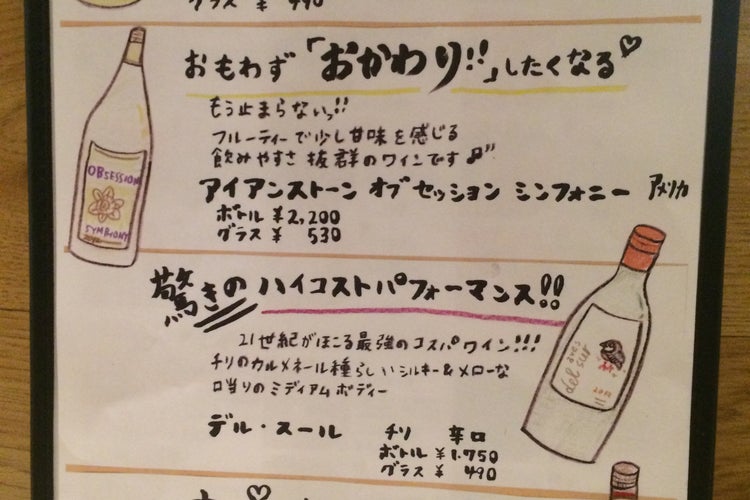 グラス ¥ 490
おもわず「おかわり!!」したくなる♡
もう止まらないっ!!
フルーティーで少し甘味を感じる
飲みやすさ抜群のワインです♪"
アイアンストーン オブセッション シンフォニー アメリカ
ボトル ¥2,200
グラス ¥ 530
OBSESSION
SYMPHONY
驚きの ハイコストパフォーマンス!!
21世紀がほこる最強のコスパワイン!!!
チリのカルメネール種らしいシルキー&メローな
口当りのミディアムボディー
デル・スール チリ 辛口
ボトル ¥1.750
グラス ¥ 490
del sur